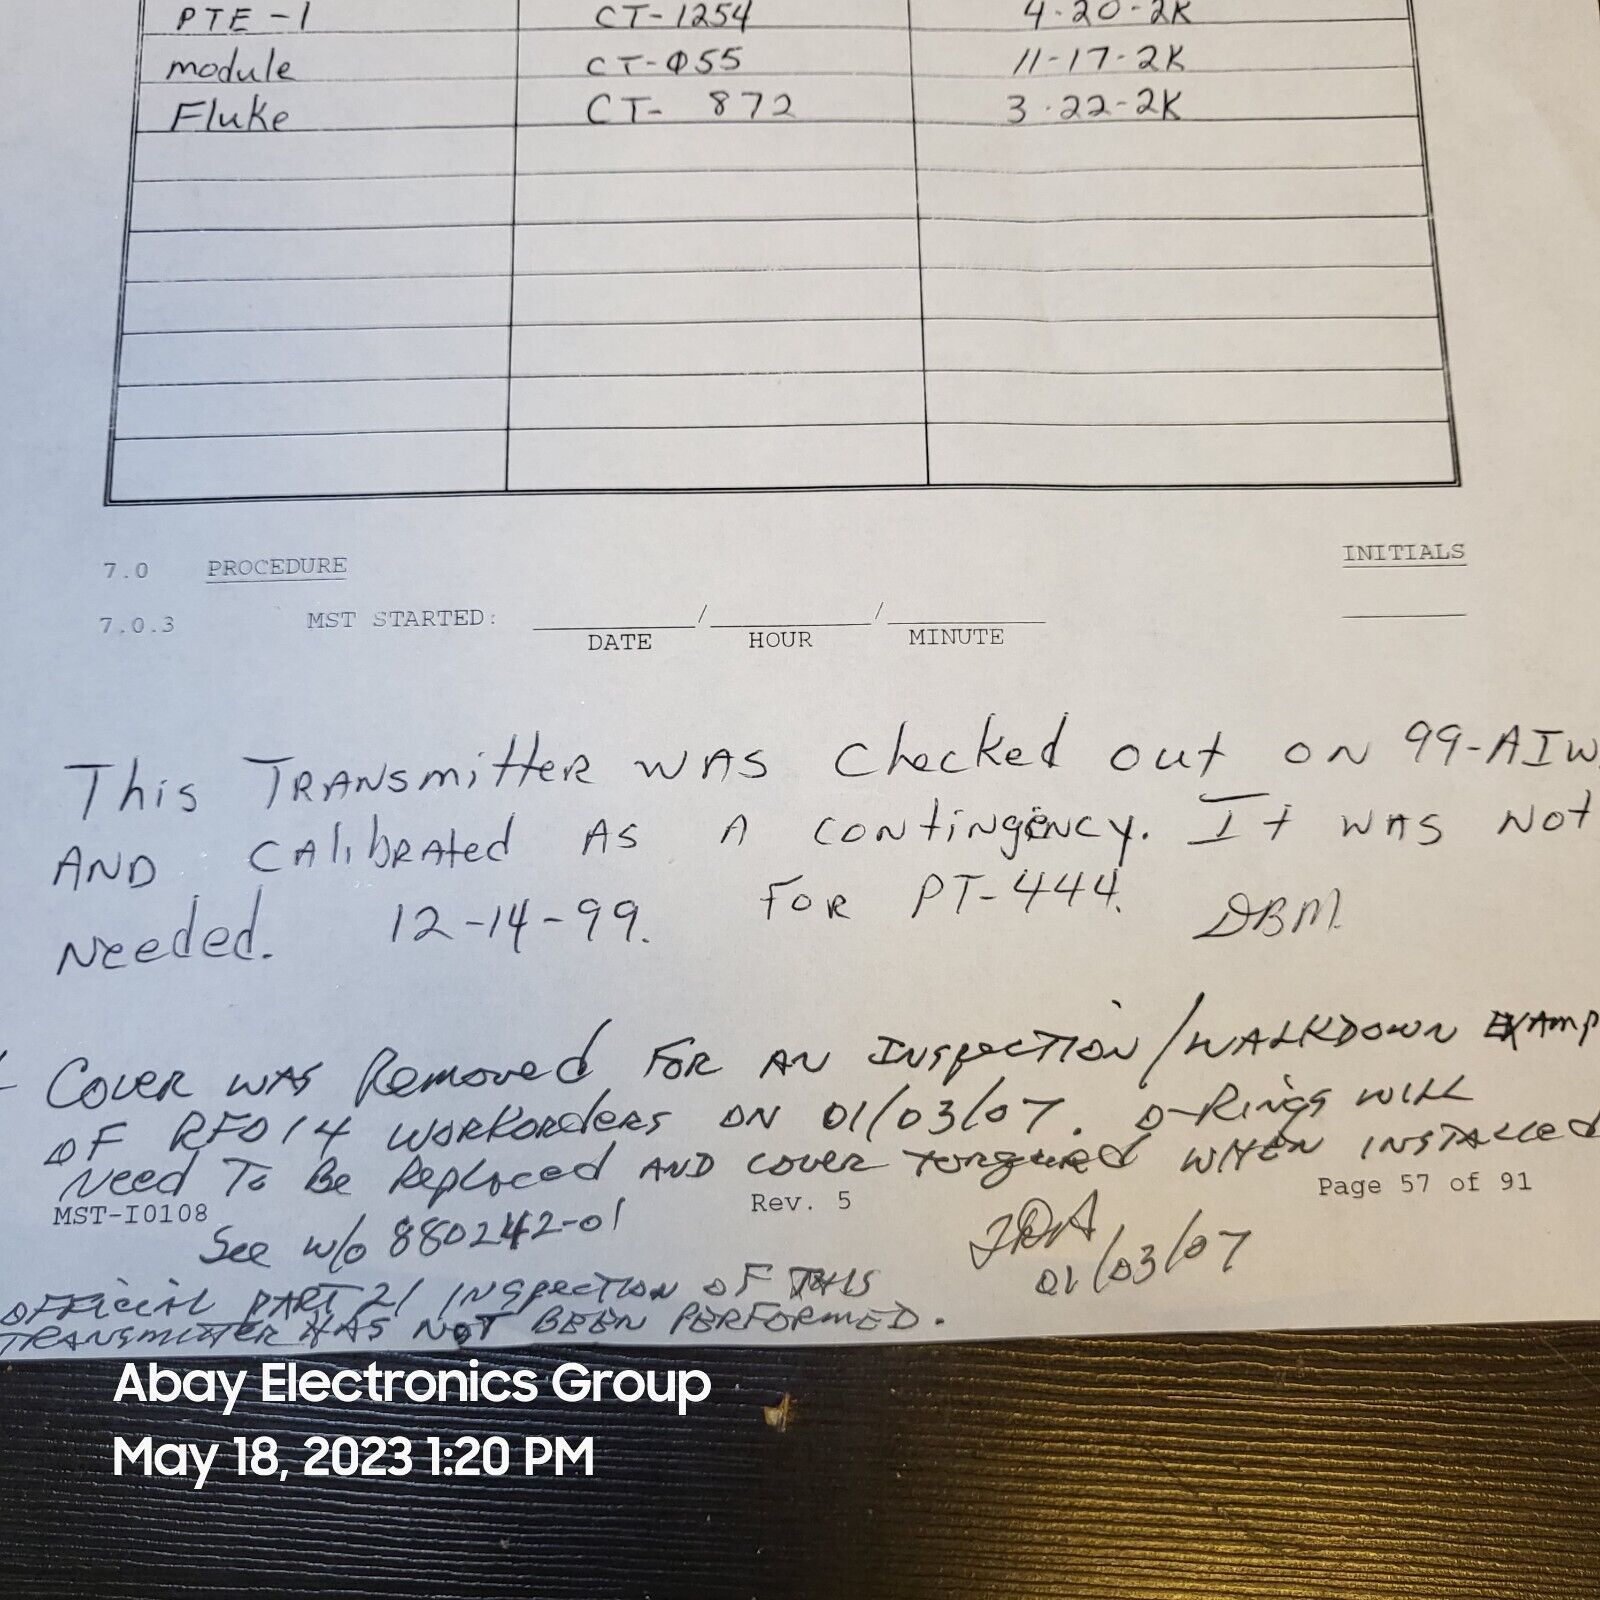 PTE-1 CT-1254 4-20-2K
module CT-Ø55 11-17-2K
Fluke CT- 872 3-22-2K
7.0 PROCEDURE INITIALS
7.0.3 MST STARTED: / /
DATE HOUR MINUTE
This TRANSmitteR WAS checked out ON 99-AIW
AND CAlibRAted AS A contingency. It WAS Not
Needed. 12-14-99. FOR PT-444. DBM.
COVER WAS Removed FOR AN INSPECTION/WALKDOWN EXAMP
OF RFO14 WORKORDERS ON 01/03/07. O-RINGS WILL
Need To Be Replaced AND COVER torqued WHEN INSTALLED
MST-I0108 Rev. 5 Page 57 of 91
See w/o 880242-01 JDA
01/03/07
OFFICIAL PART 21 INSPECTION OF THIS
TRANSMITTER HAS NOT BEEN PERFORMED.
Abay Electronics Group
May 18, 2023 1:20 PM